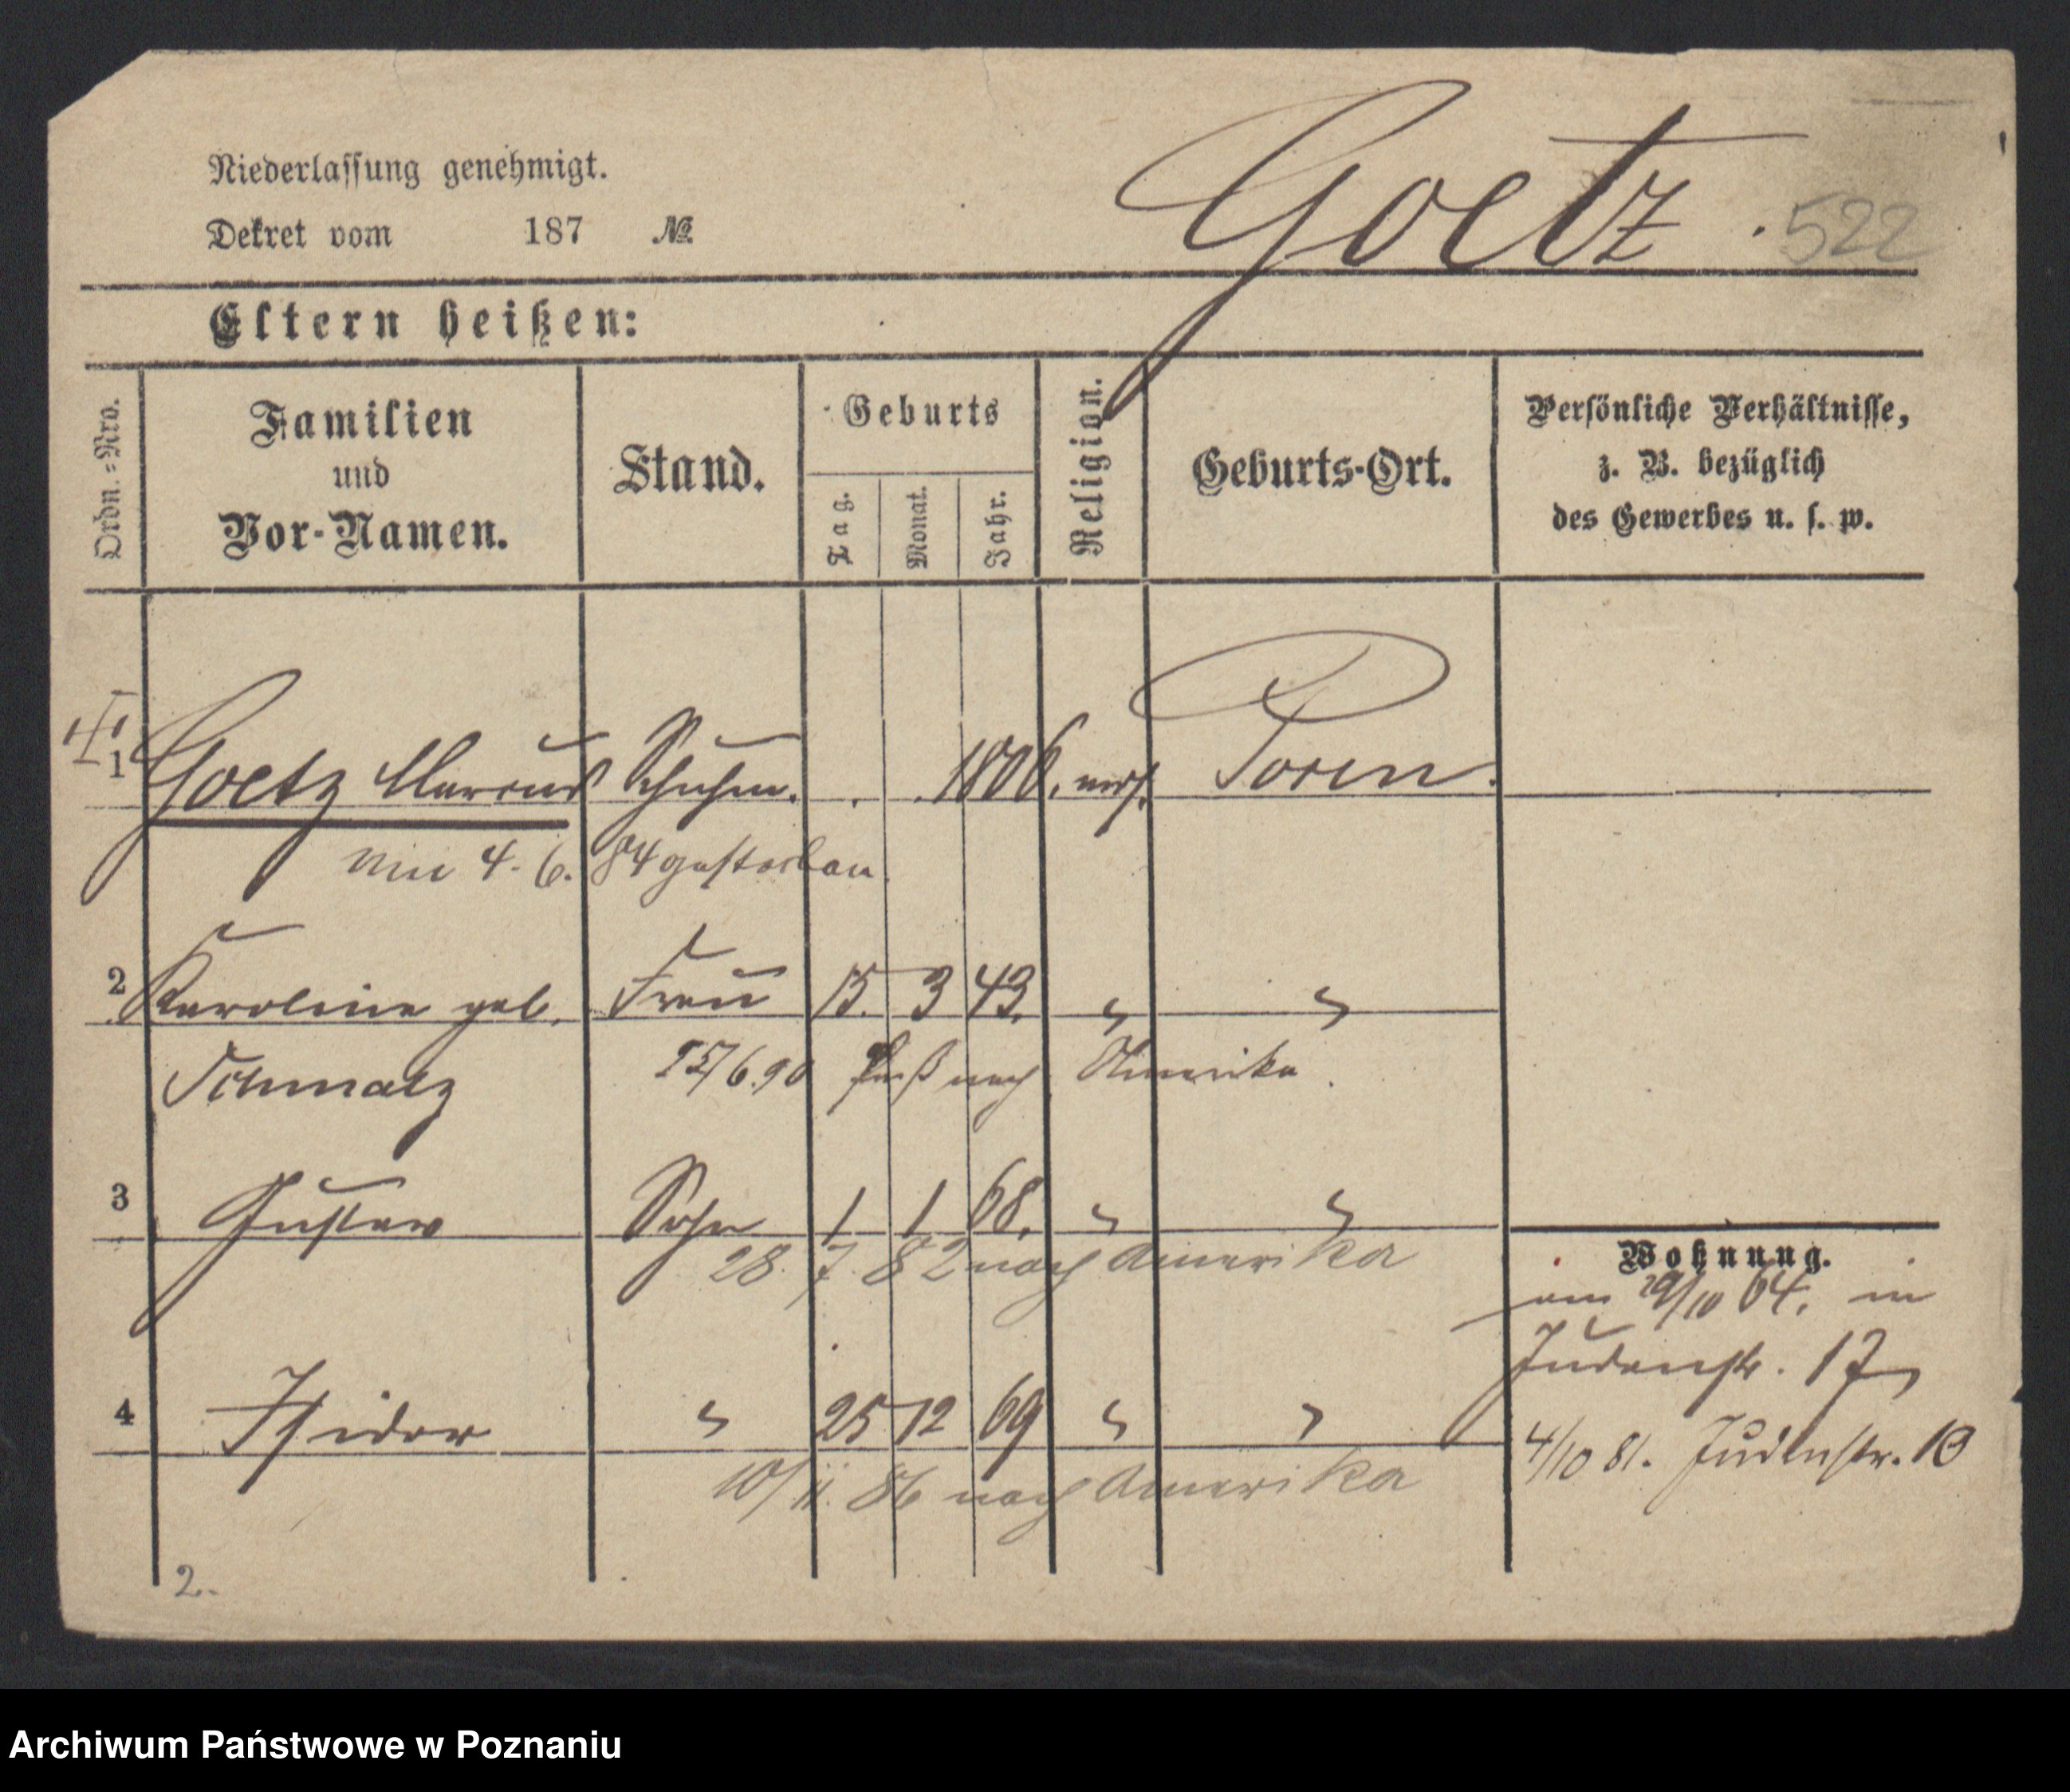 Niederlassung genehmigt.
Dekret vom 187 №
Goetz. 522
Eltern heißen:
Ordn.=Nro.
Familien
und
Vor-Namen.
Stand.
Geburts
Tag.
Monat.
Jahr.
Religion.
Geburts-Ort.
Persönliche Verhältnisse,
z. B. bezüglich
des Gewerbes u. s. w.
1 Goetz Marcus Schuhm. 1806. mos. Posen.
4. 6. 84 gestorben
2 Karoline geb. Frau 15. 3 43. " "
Schmalz
/6.90 Paß nach Amerika.
3 Gustav Sohn 1 1 68. " "
28. 7. 82 nach Amerika
4 Isidor " 25 12 69 " "
10/11. 86 nach Amerika
Wohnung.
am 29/10 64. in
Judenstr. 17
4/10 81. Judenstr. 13
2.
Archiwum Państwowe w Poznaniu